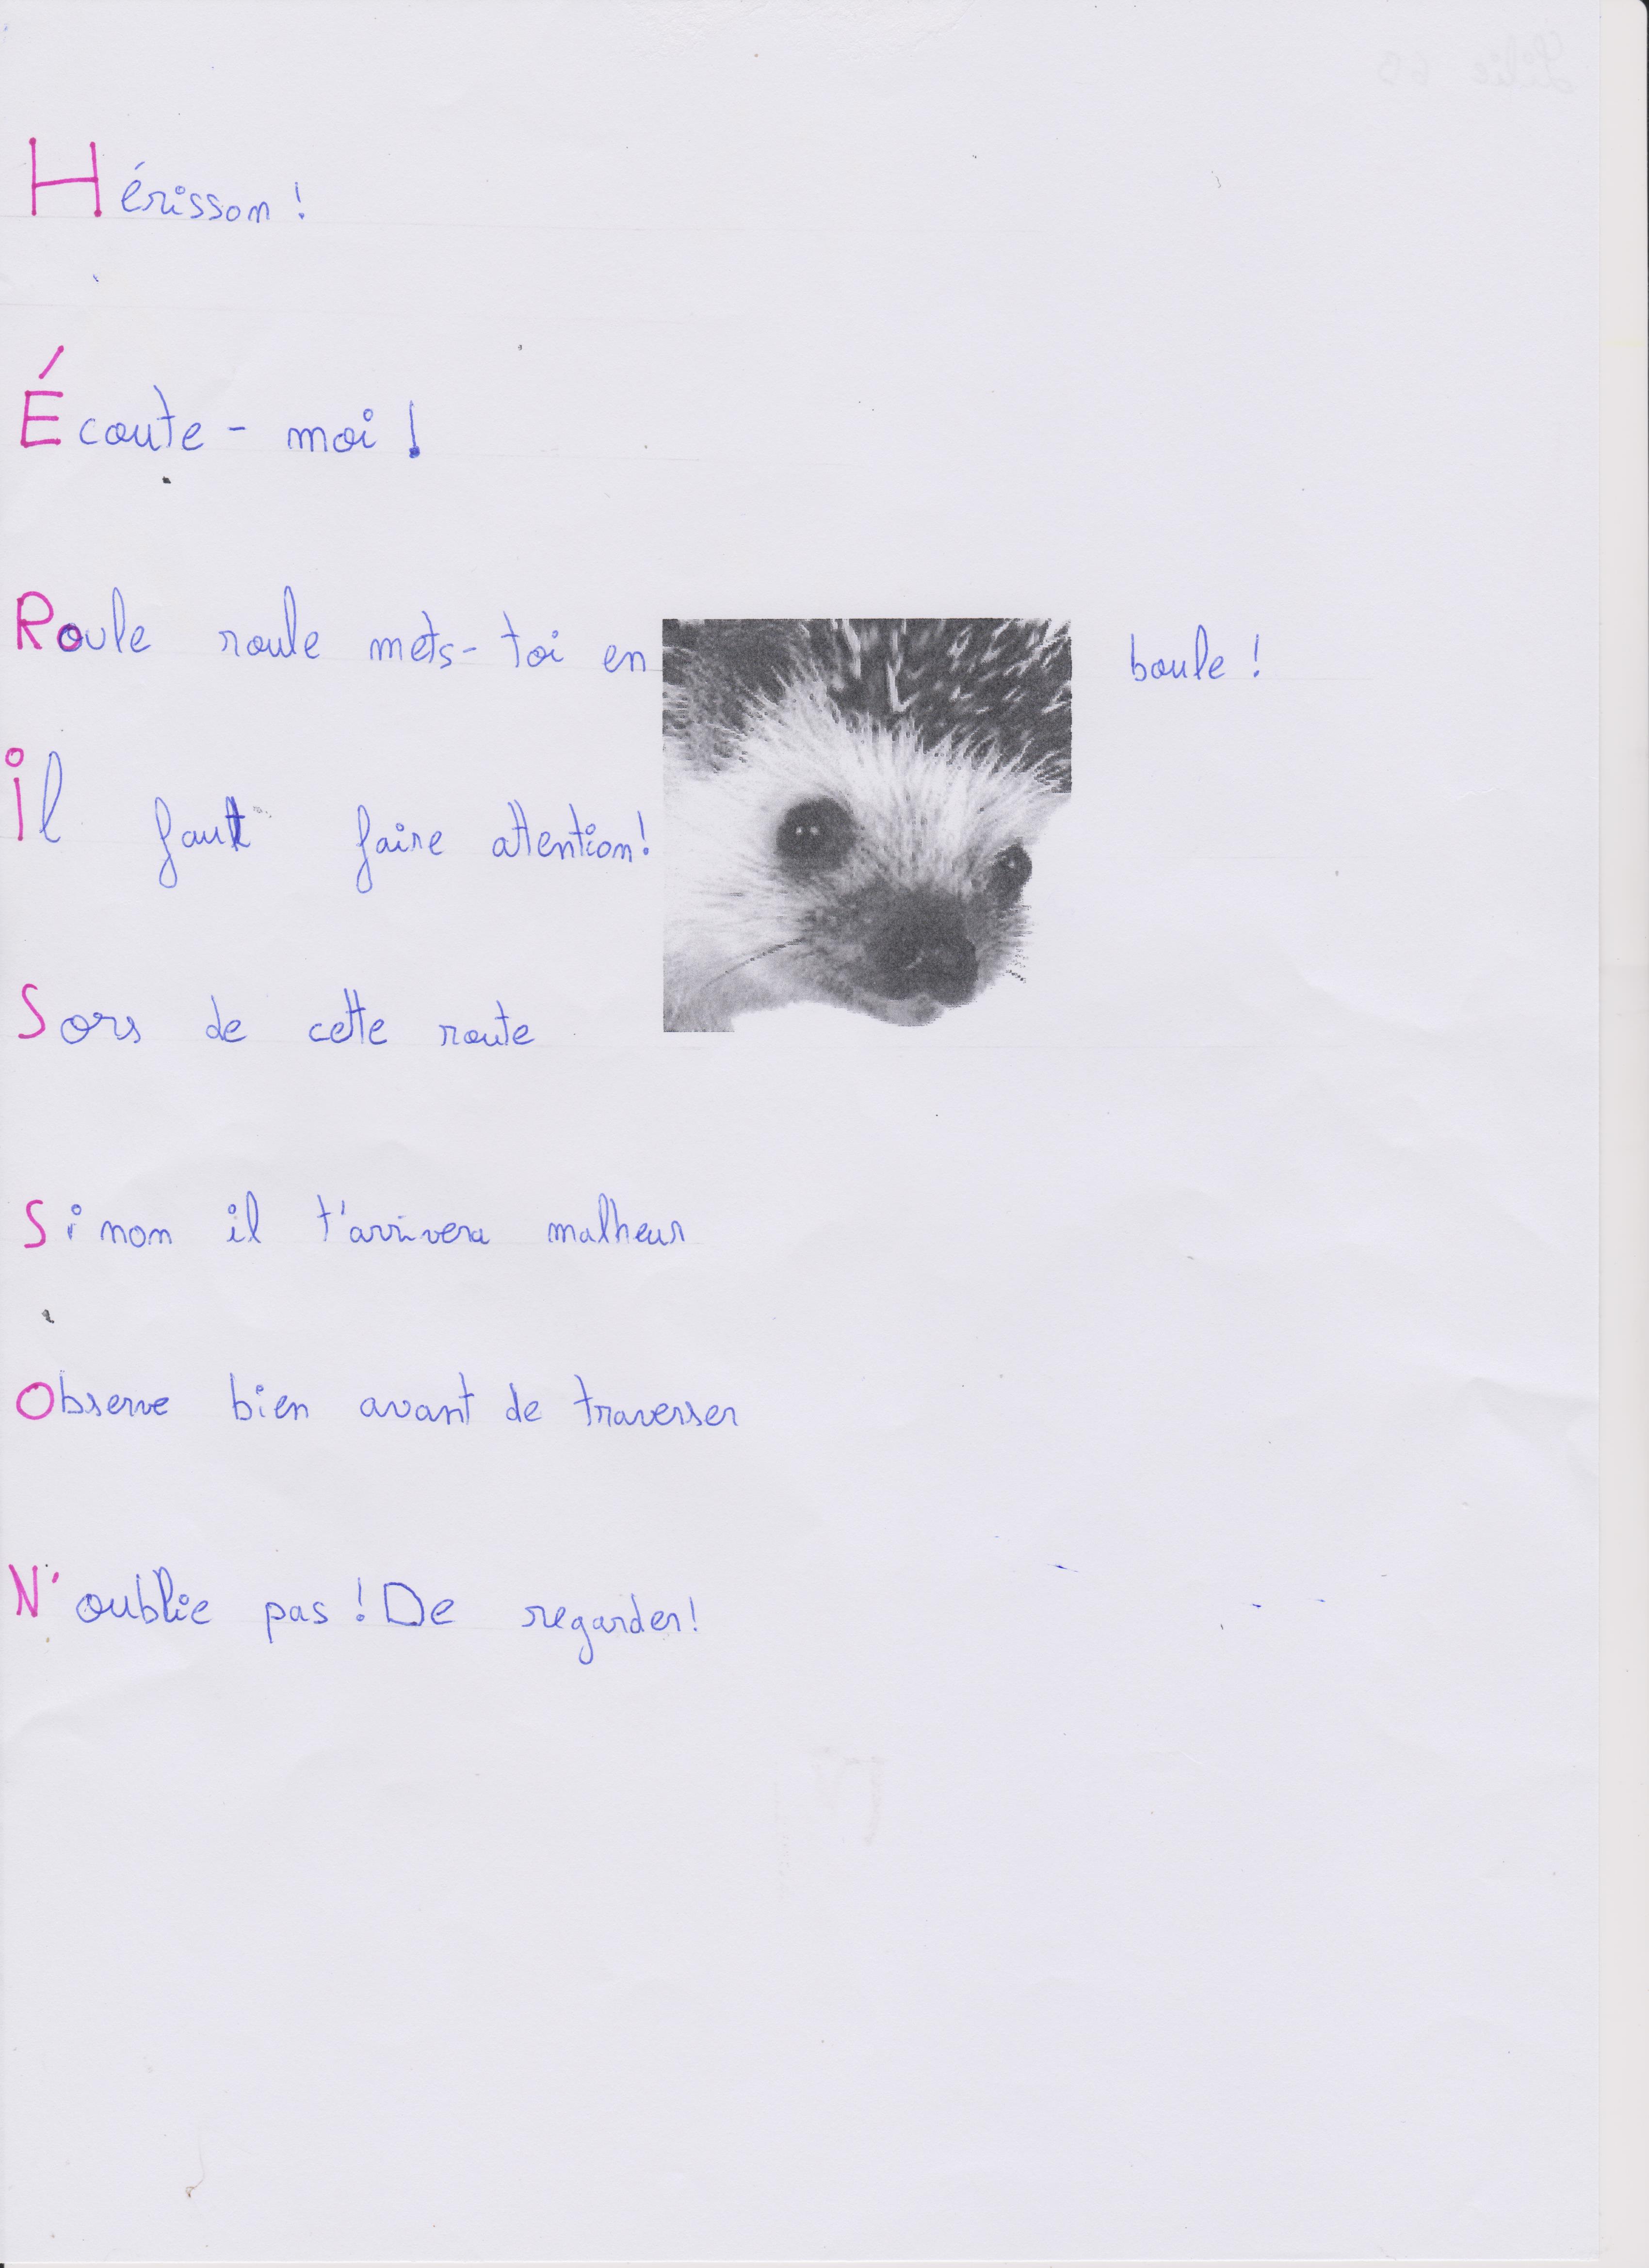 Hérisson !
Écoute-moi !
Roule roule mets-toi en boule !
Il faut faire attention!
Sors de cette route
Si non il t'arrivera malheur
Observe bien avant de traverser
N'oublie pas ! De regarder!